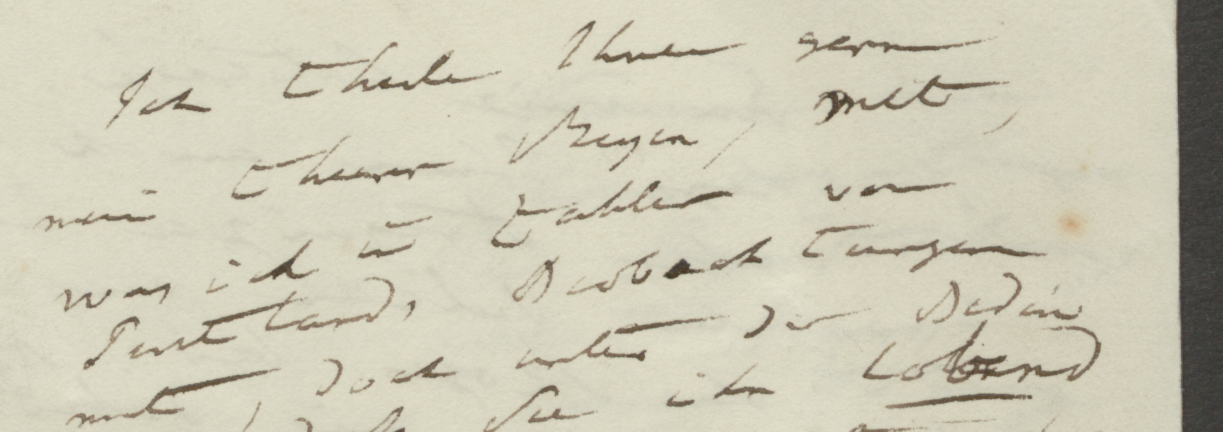 Ich theile Ihnen gern
mein theurer Meyen, mit,
was ich in Zahlen von
Beobachtungen
mit, doch unter der Bedin
Sie ihn lobend